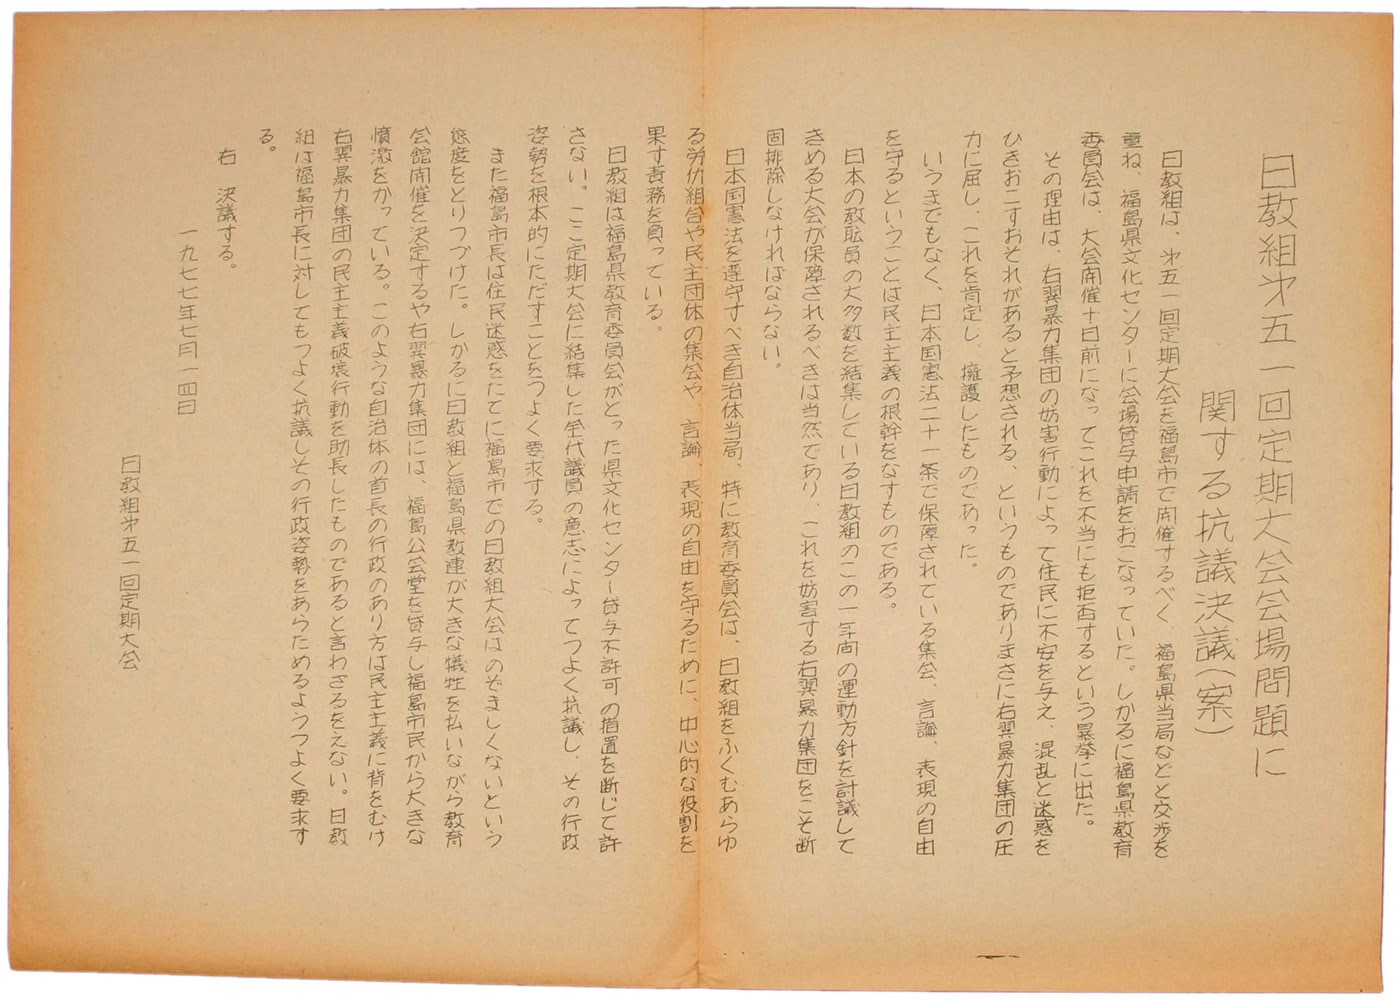 日教組第五一回定期大会会場問題に
関する抗議決議(案)
日教組は、第五一回定期大会を福島市で開催するべく、福島県当局などと交渉を
重ね、福島県文化センターに会場貸与申請をおこなっていた。しかるに福島県教育
委員会は、大会開催十日前になってこれを不当にも拒否するという暴挙に出た。
その理由は、右翼暴力集団の妨害行動によって住民に不安を与え、混乱と迷惑を
ひきおこすおそれがあると予想される、というものでありまさに右翼暴力集団の圧
力に屈し、これを肯定し、擁護したものであった。
いうまでもなく、日本国憲法二十一条で保障されている集会、言論、表現の自由
を守るということは民主主義の根幹をなすものである。
日本の教職員の大多数を結集している日教組のこの一年間の運動方針を討議して
きめる大会が保障されるべきは当然であり、これを妨害する右翼暴力集団をこそ断
固排除しなければならない。
日本国憲法を遵守すべき自治体当局、特に教育委員会は、日教組をふくむあらゆ
る労仂組合や民主団体の集会や、言論、表現の自由を守るために、中心的な役割を
果す責務を負っている。
日教組は福島県教育委員会がとった県文化センター貸与不許可の措置を断じて許
さない。ここ定期大会に結集した全代議員の意志によってつよく抗議し、その行政
姿勢を根本的にただすことをつよく要求する。
また福島市長は住民迷惑をたてに福島市での日教組大会はのぞましくないという
態度をとりつづけた。しかるに日教組と福島県教連が大きな犠牲を払いながら教育
会館開催を決定するや右翼暴力集団には、福島公会堂を貸与し福島市民から大きな
憤激をかっている。このような自治体の首長の行政のあり方は民主主義に背をむけ
右翼暴力集団の民主主義破壊行動を助長したものであると言わざるをえない。日教
組は福島市長に対してもつよく抗議しその行政姿勢をあらためるようつよく要求す
る。
右 決議する。
一九七七年七月一四日
日教組第五一回定期大会